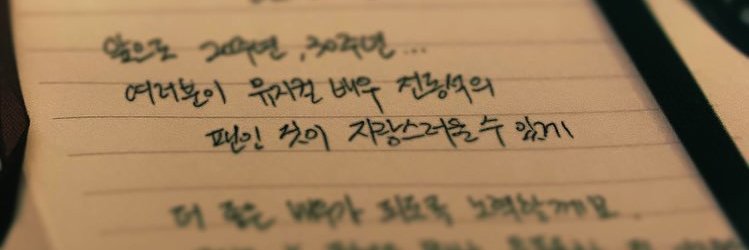 앞으로 20주년, 30주년...
여러분이 뮤지컬 배우 전동석의
팬인 것이 자랑스러울 수 있게
더 좋은 배우가 되도록 노력할게요.